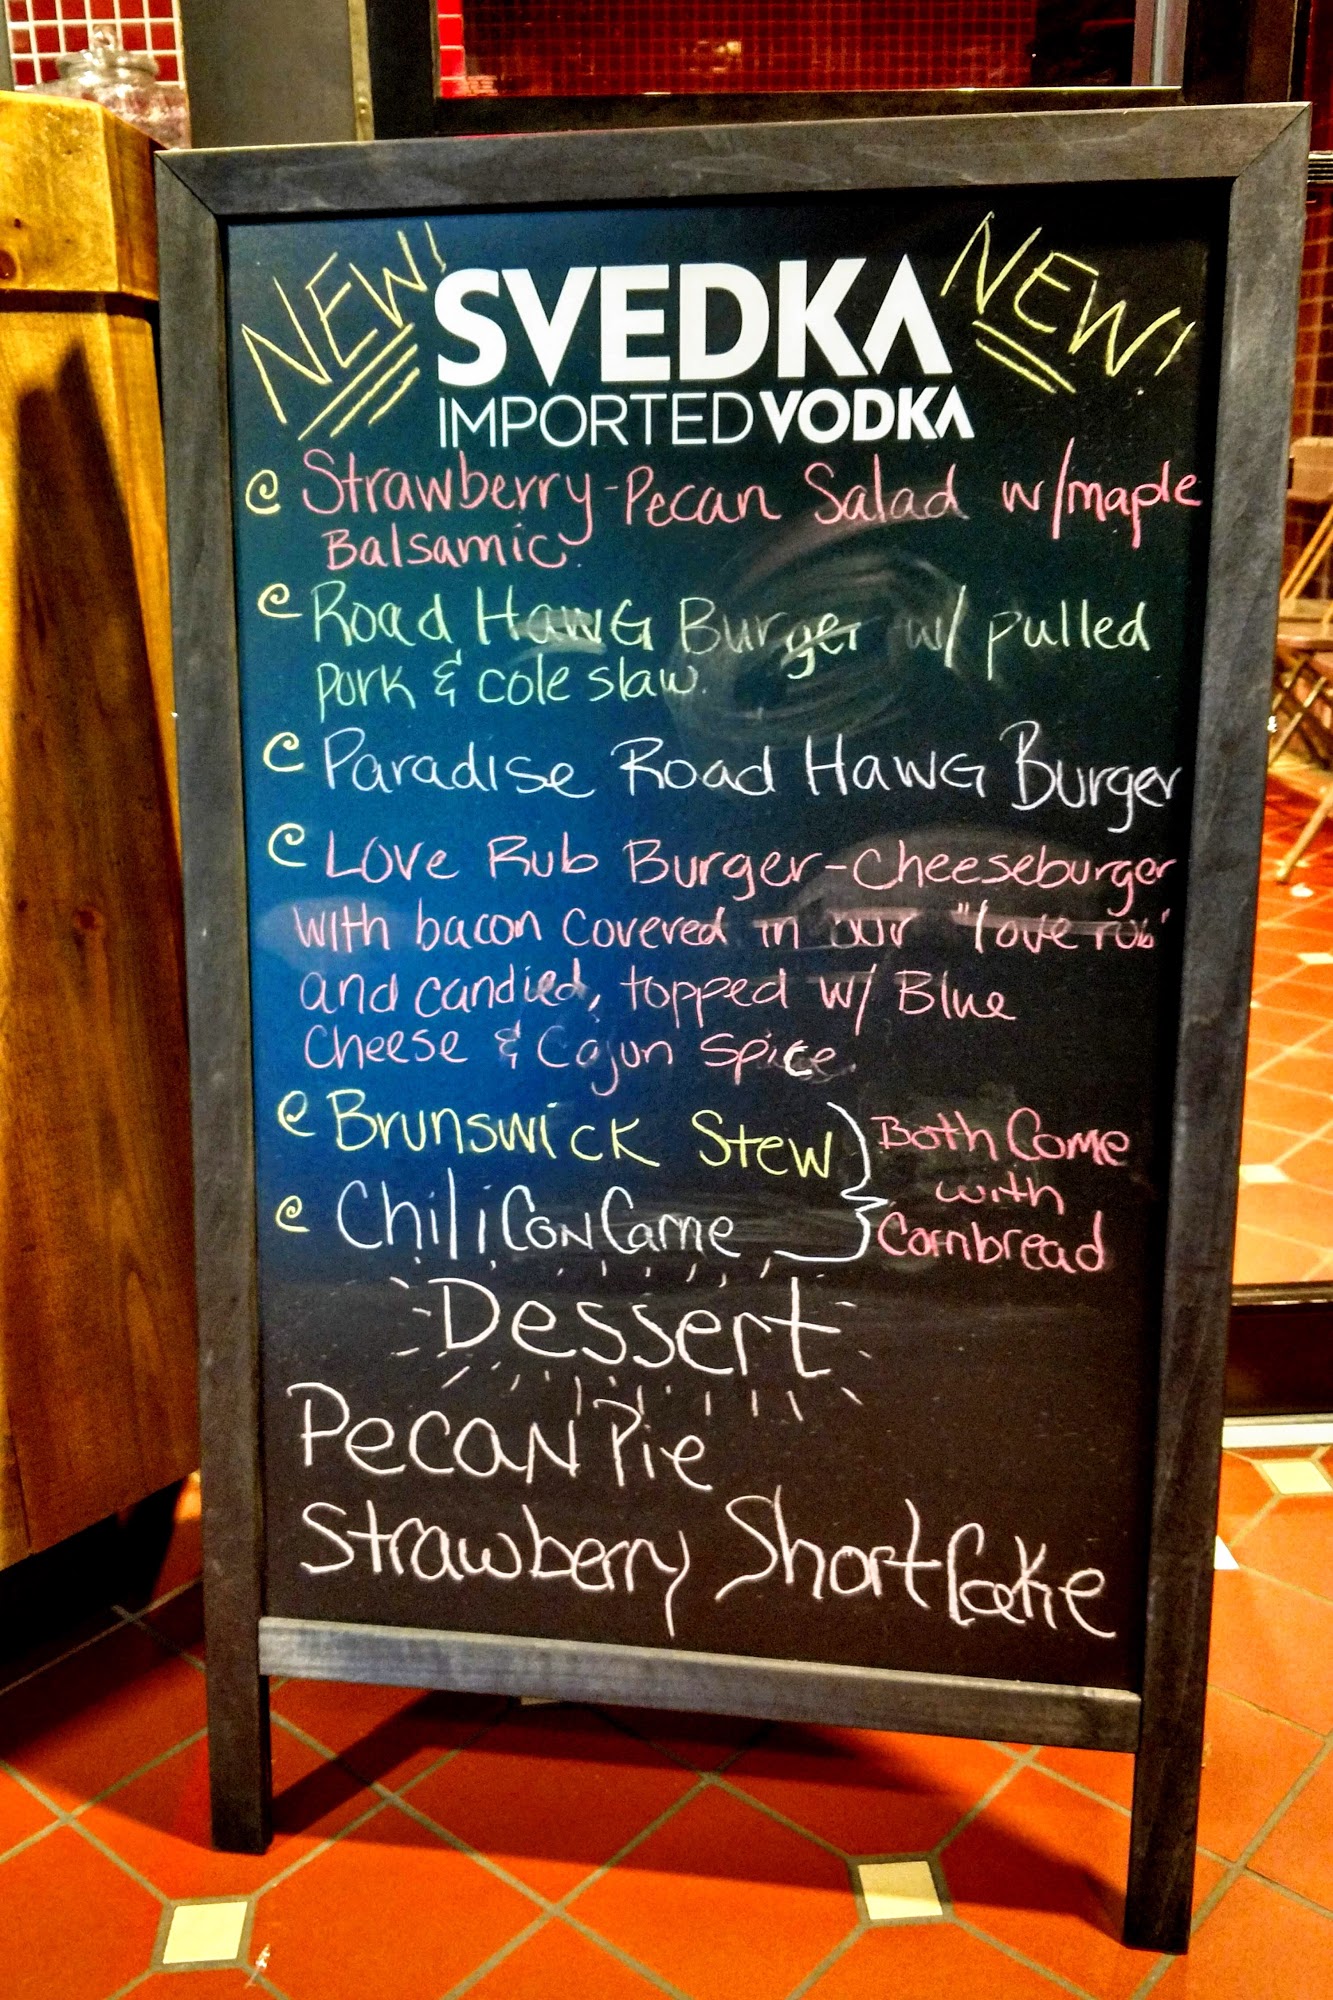 NEW! SVEDKA NEW!
IMPORTED VODKA
Strawberry-Pecan Salad w/maple
Balsamic.
Road HawG Burger w/ pulled
pork & cole slaw.
Paradise Road HawG Burger
Love Rub Burger-Cheeseburger
with bacon covered in our "love rub"
and candied, topped w/ Blue
Cheese & Cajun Spice
Brunswick Stew
Chili Con Carne
Both Come
with
Cornbread
Dessert
Pecan Pie
Strawberry ShortCake